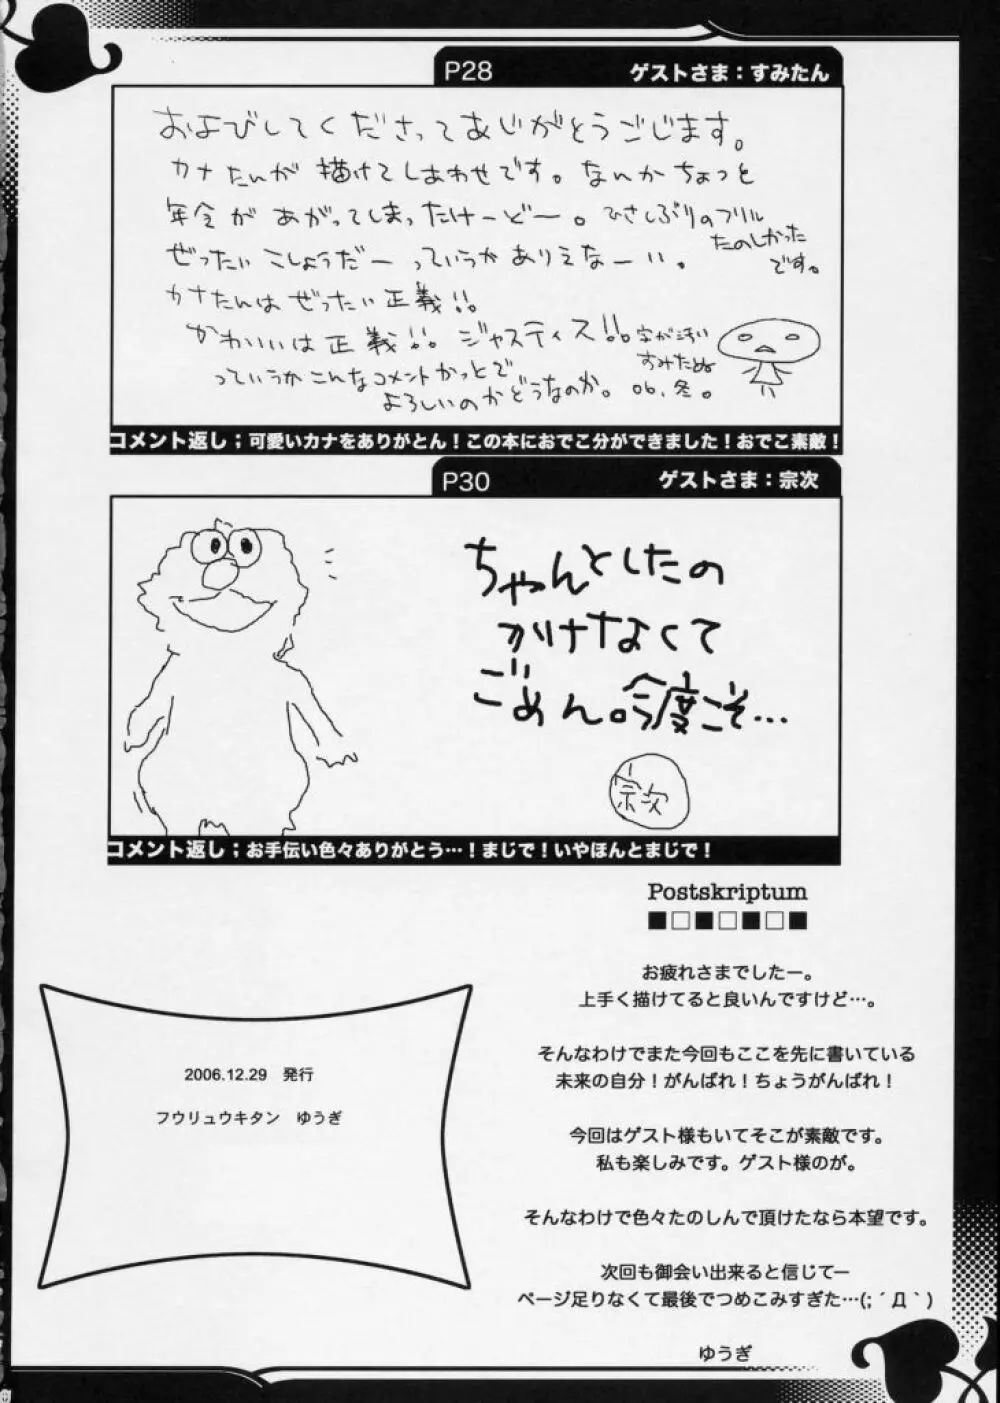 P28 ゲストさま：すみたん
およびしてくださってありがとうごじます。
カナたんが描けてしあわせです。なんかちょっと
年令があがってしまったけーどー。ひさしぶりのフリル
たのしかった
です。
ぜったいこしょうだーっていうかありえなーい。
カナたんはぜったい正義!!
かわいいは正義!!ジャスティス!!
っていうかこんなコメントかっとで
よろしいのかどうなのか。
字が汚い
すみたぬ
06.冬。
コメント返し；可愛いカナをありがとん！この本におでこ分ができました！おでこ素敵！
P30 ゲストさま：宗次
ちゃんとしたの
かけなくて
ごめん。今度こそ…
宗次
コメント返し；お手伝い色々ありがとう…！まじで！いやほんとまじで！
Postskriptum
お疲れさまでしたー。
上手く描けてると良いんですけど…。
そんなわけでまた今回もここを先に書いている
未来の自分！がんばれ！ちょうがんばれ！
今回はゲスト様もいてそこが素敵です。
私も楽しみです。ゲスト様のが。
そんなわけで色々たのしんで頂けたなら本望です。
次回も御会い出来ると信じてー
ページ足りなくて最後でつめこみすぎた…(;´Д｀)
ゆうぎ
2006.12.29　発行
フウリュウキタン　ゆうぎ